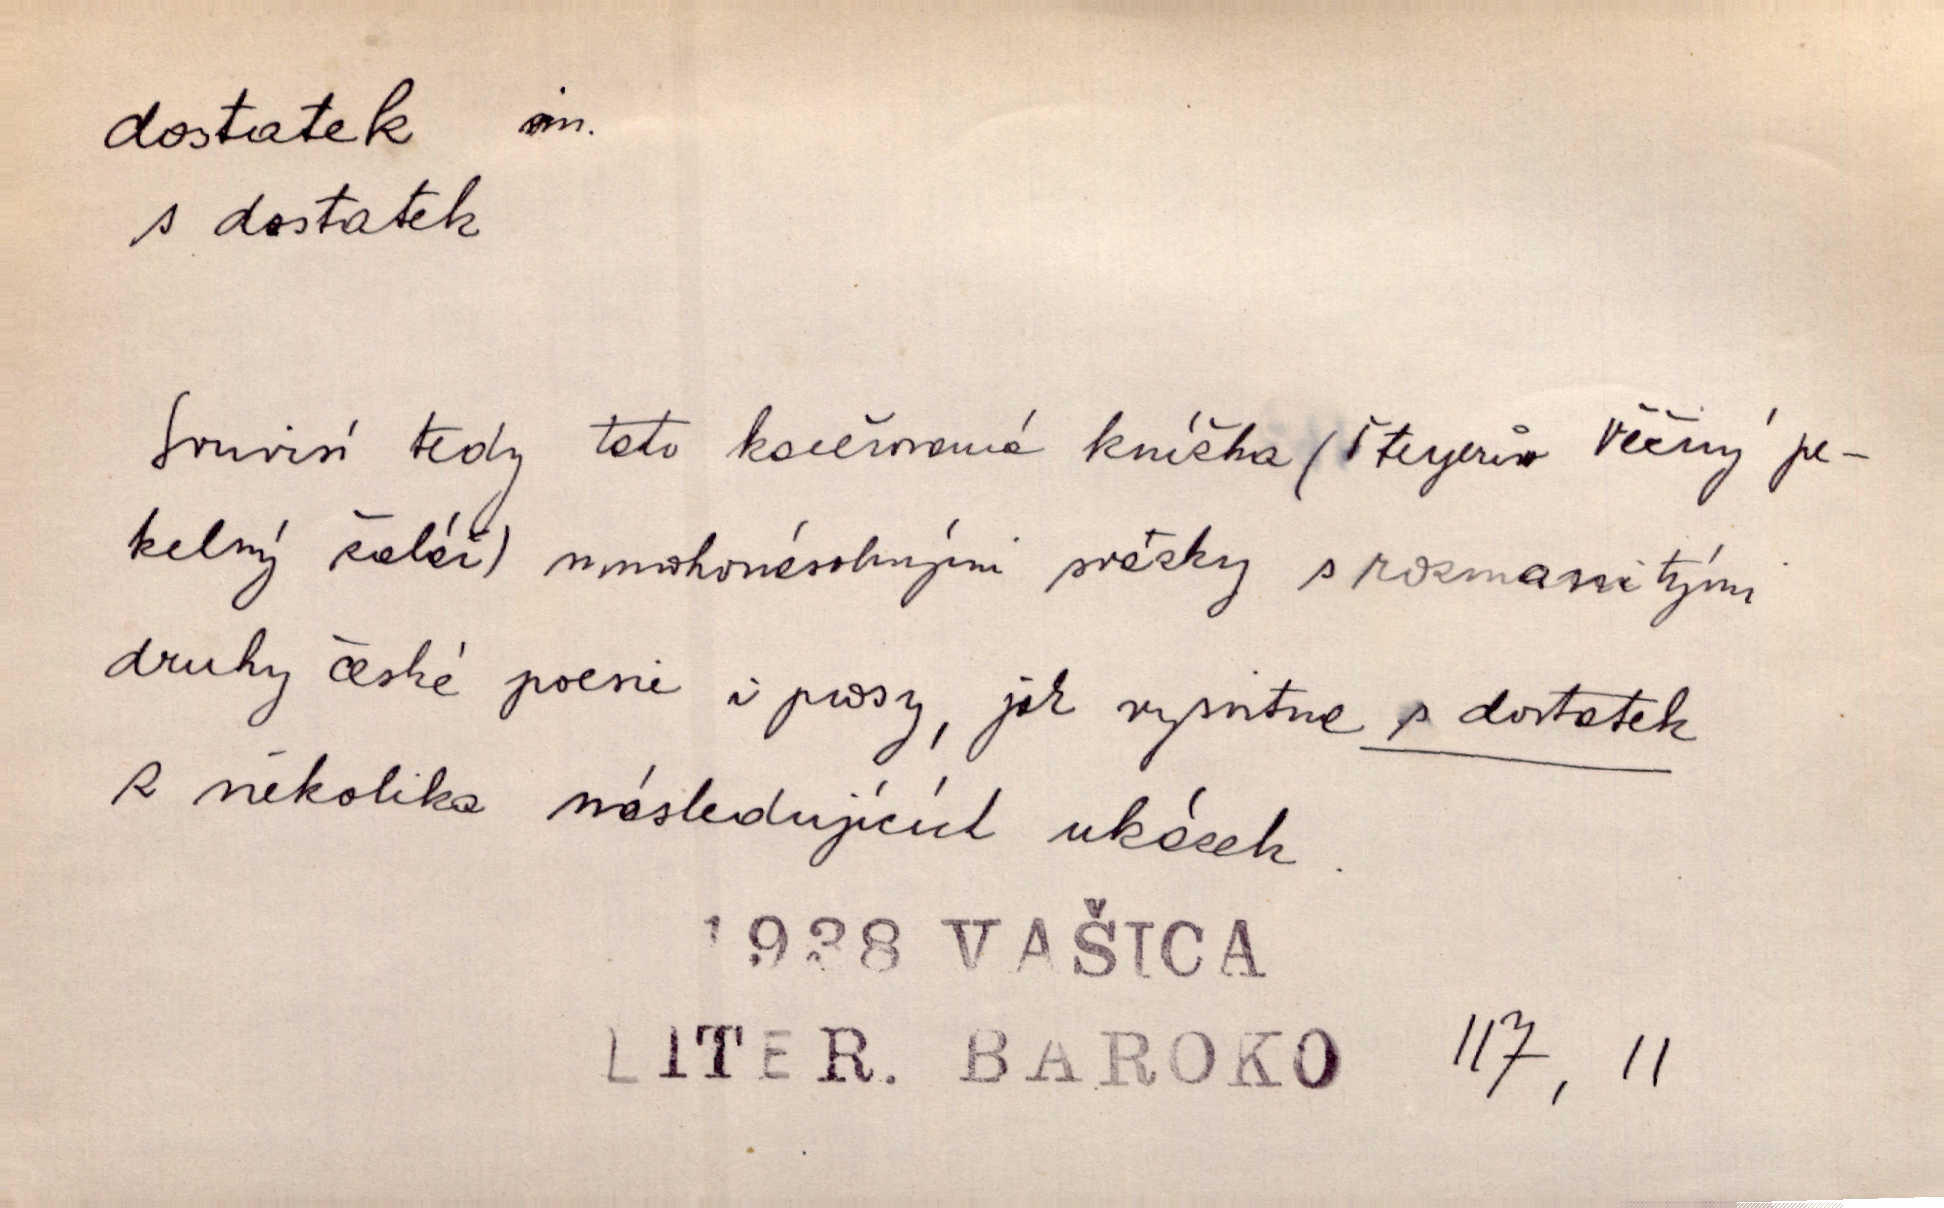 dostatek m.
s dostatek
Souvisí tedy tato kaceřovaná knížka (Šteyerův Věčný pe-
kelný žalář) mnohonásobnými svazky s rozmanitými
druhy české poesie i prosy, jak vysvitne s dostatek
z několika následujících ukázek.
1938 VAŠICA
LITER. BAROKO 117, 11